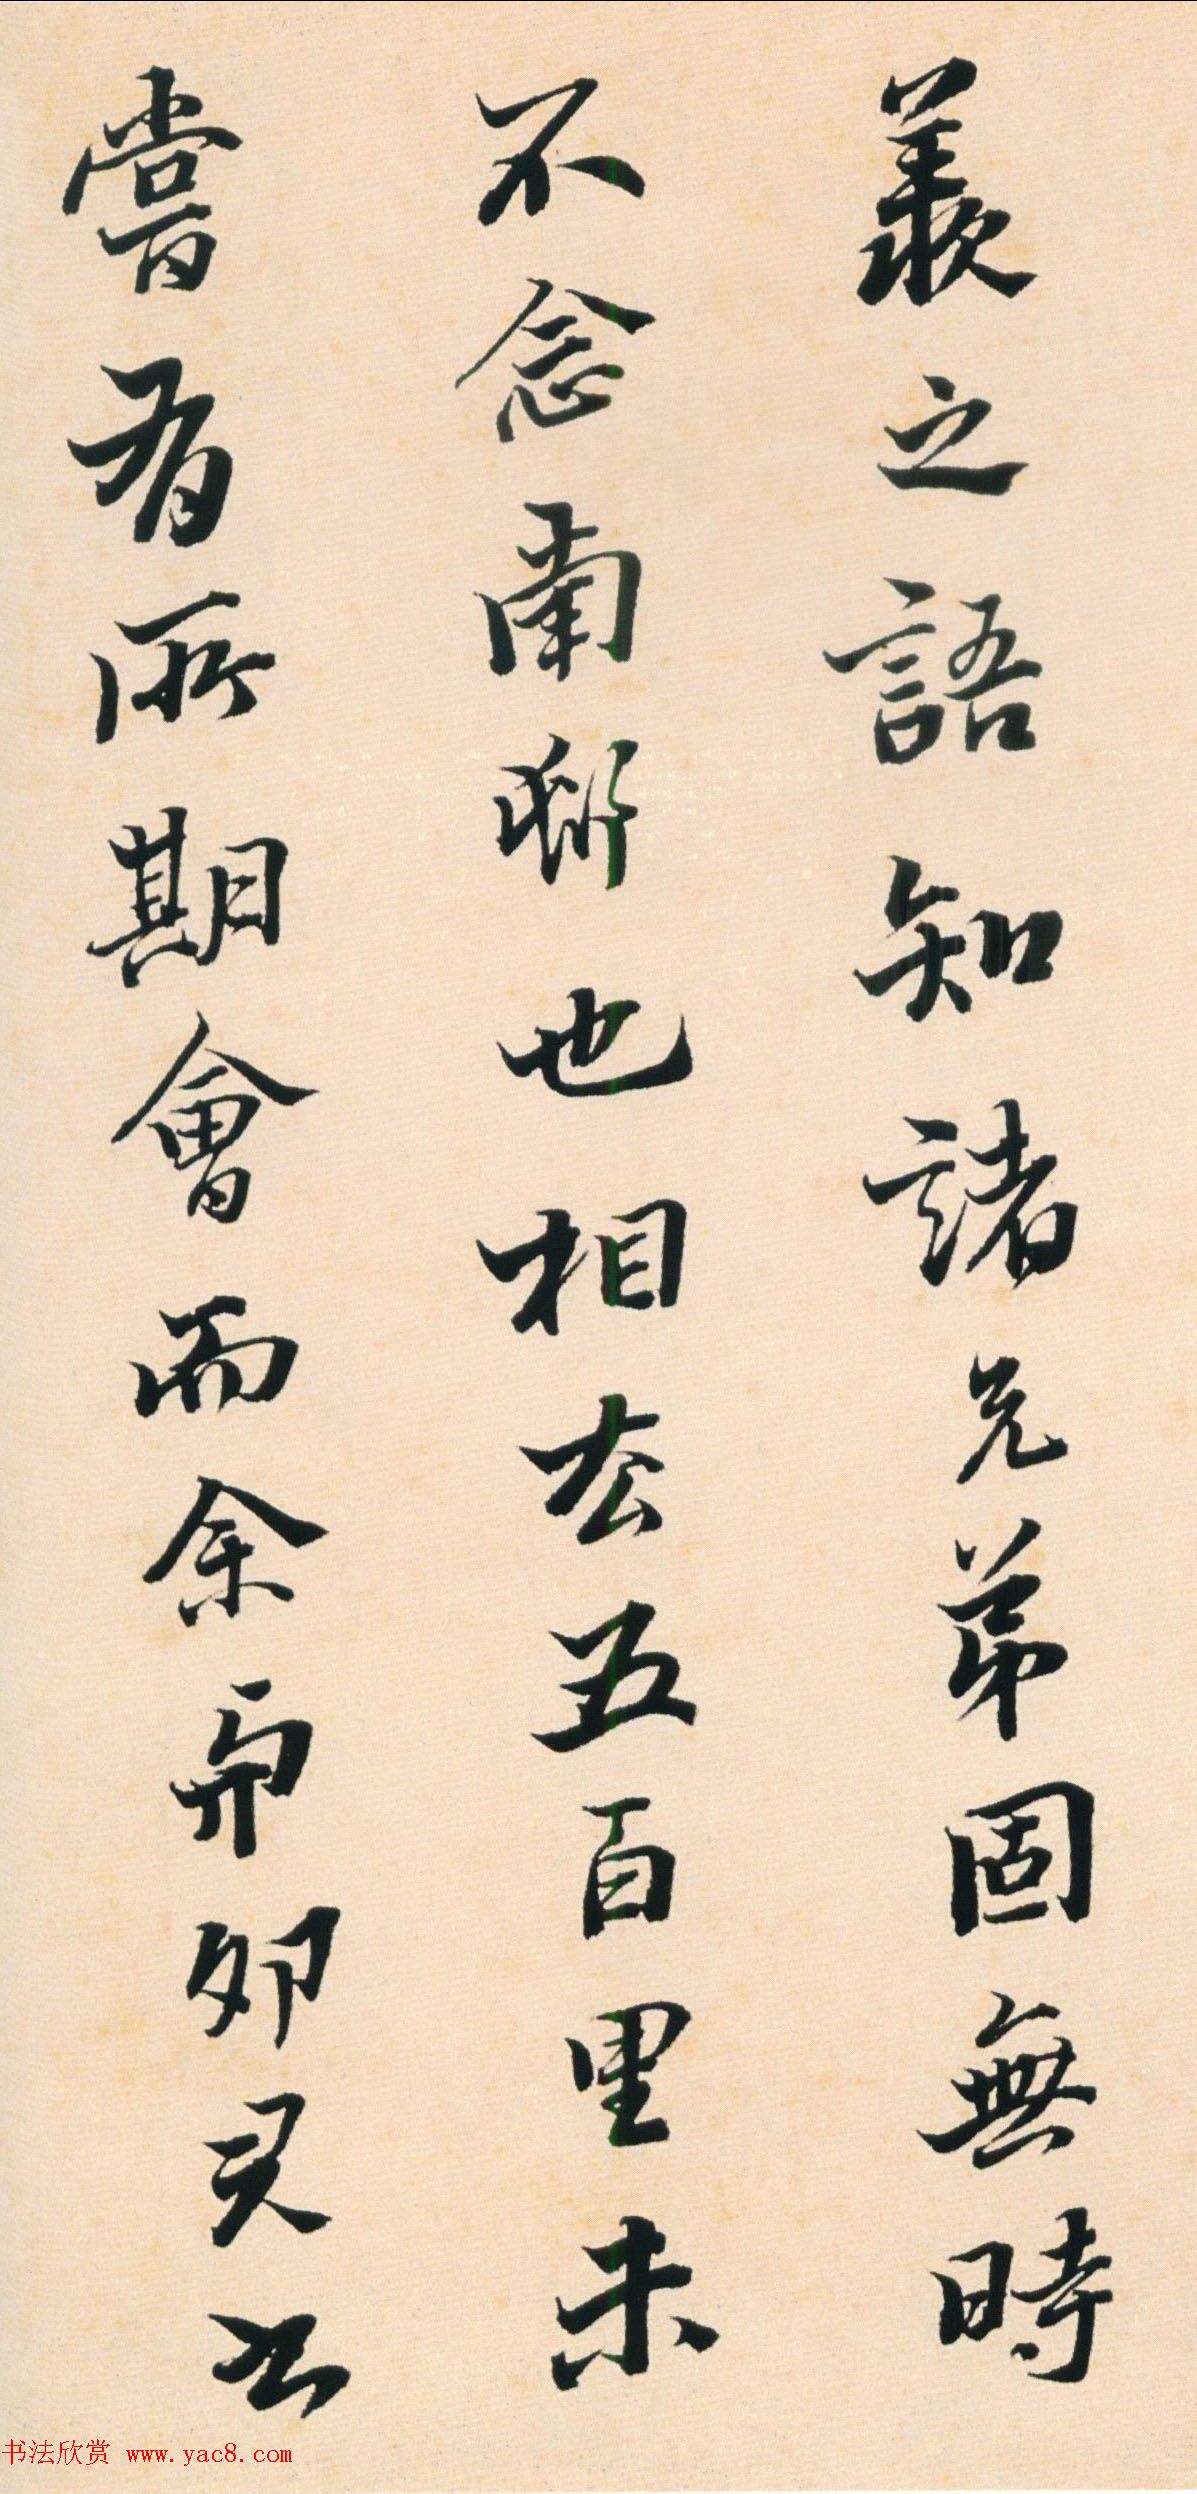 羨之語知諸兄弟固無時
不念南邨也相去五百里未
嘗有所期會而余與夘
书法欣赏 www.yac8.com